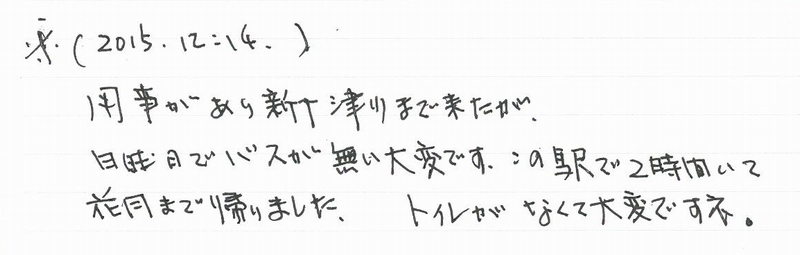 ※(2015.12.14.)
用事があり新十津川まで来たが、
日曜日でバスが無い大変です、この駅で2時間いて
花月まで帰りました、 トイレがなくて大変ですネ。